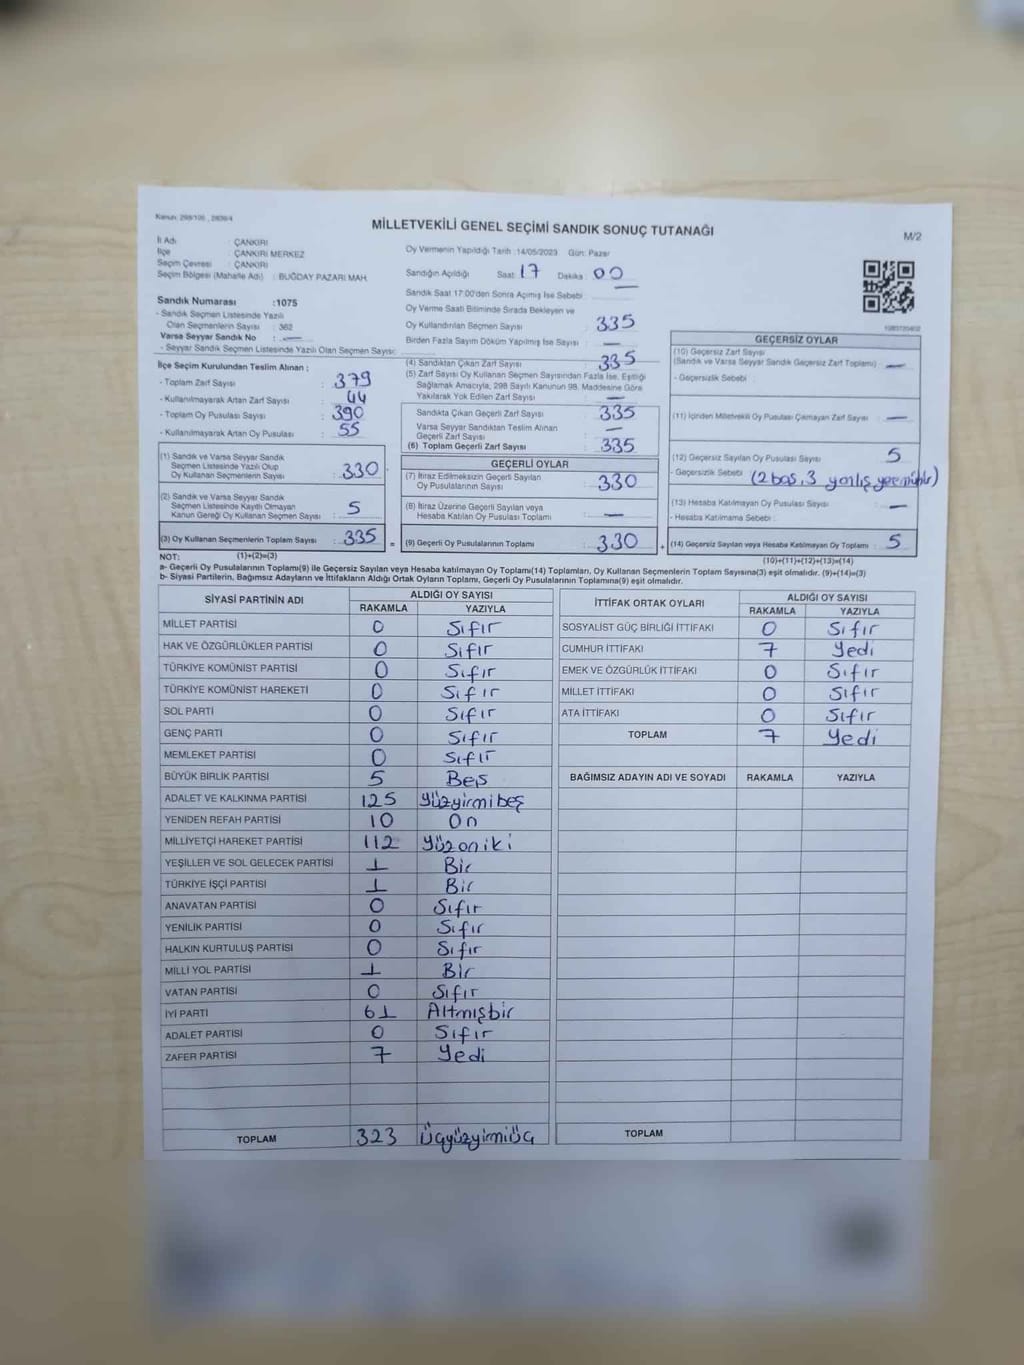 Kanun: 298/105 , 2839/4
MİLLETVEKİLİ GENEL SEÇİMİ SANDIK SONUÇ TUTANAĞI
M/2
İl Adı : ÇANKIRI
İlçe : ÇANKIRI MERKEZ
Seçim Çevresi : ÇANKIRI
Seçim Bölgesi (Mahalle Adı) : BUĞDAY PAZARI MAH.
Sandık Numarası :1075
- Sandık Seçmen Listesinde Yazılı
Olan Seçmenlerin Sayısı : 362
Varsa Seyyar Sandık No : —
- Seyyar Sandık Seçmen Listesinde Yazılı Olan Seçmen Sayısı:
Oy Vermenin Yapıldığı Tarih :14/05/2023 Gün: Pazar
Sandığın Açıldığı Saat: 17 Dakika: 00
Sandık Saat 17:00'den Sonra Açılmış İse Sebebi —
Oy Verme Saati Bitiminde Sırada Bekleyen ve
Oy Kullandırılan Seçmen Sayısı : 335
Birden Fazla Sayım Döküm Yapılmış İse Sayısı : —
İlçe Seçim Kurulundan Teslim Alınan :
- Toplam Zarf Sayısı : 379
- Kullanılmayarak Artan Zarf Sayısı : 44
- Toplam Oy Pusulası Sayısı : 390
- Kullanılmayarak Artan Oy Pusulası : 55
(1) Sandık ve Varsa Seyyar Sandık
Seçmen Listesinde Yazılı Olup
Oy Kullanan Seçmen Sayısı : 330
(2) Sandık ve Varsa Seyyar Sandık
Seçmen Listesinde Kayıtlı Olmayan
Kanun Gereği Oy Kullanan Seçmen Sayısı : 5
(3) Oy Kullanan Seçmenlerin Toplam Sayısı : 335 =
(1)+(2)=(3)
(4) Sandıktan Çıkan Zarf Sayısı : 335
(5) Zarf Sayısı Oy Kullanan Seçmen Sayısından Fazla İse, Eşitliği
Sağlamak Amacıyla, 298 Sayılı Kanunun 98. Maddesine Göre
Yakılarak Yok Edilen Zarf Sayısı : —
Sandıkta Çıkan Geçerli Zarf Sayısı : 335
Varsa Seyyar Sandıktan Teslim Alınan
Geçerli Zarf Sayısı : —
(6) Toplam Geçerli Zarf Sayısı : 335
GEÇERLİ OYLAR
(7) İtiraz Edilmeksizin Geçerli Sayılan
Oy Pusulalarının Sayısı : 330
(8) İtiraz Üzerine Geçerli Sayılan veya
Hesaba Katılan Oy Pusulası Toplamı : —
(9) Geçerli Oy Pusulalarının Toplamı : 330 +
GEÇERSİZ OYLAR
(10) Geçersiz Zarf Sayısı
(Sandık ve Varsa Seyyar Sandık Geçersiz Zarf Toplamı) : —
- Geçersizlik Sebebi :
(11) İçinden Milletvekili Oy Pusulası Çıkmayan Zarf Sayısı : —
(12) Geçersiz Sayılan Oy Pusulası Sayısı : 5
- Geçersizlik Sebebi : (2 boş, 3 yanlış
(13) Hesaba Katılmayan Oy Pusulası Sayısı : —
- Hesaba Katılmama Sebebi :
(14) Geçersiz Sayılan veya Hesaba Katılmayan Oy Toplamı : 5
(10)+(11)+(12)+(13)=(14)
NOT:
a- Geçerli Oy Pusulalarının Toplamı(9) ile Geçersiz Sayılan veya Hesaba katılmayan Oy Toplamı(14) Toplamları, Oy Kullanan Seçmenlerin Toplam Sayısına(3) eşit olmalıdır. (9)+(14)=(3)
b- Siyasi Partilerin, Bağımsız Adayların ve İttifakların Aldığı Ortak Oyların Toplamı, Geçerli Oy Pusulalarının Toplamına(9) eşit olmalıdır.
SİYASİ PARTİNİN ADI ALDIĞI OY SAYISI
RAKAMLA YAZIYLA
MİLLET PARTİSİ 0 Sıfır
HAK VE ÖZGÜRLÜKLER PARTİSİ 0 Sıfır
TÜRKİYE KOMÜNİST PARTİSİ 0 Sıfır
TÜRKİYE KOMÜNİST HAREKETİ 0 Sıfır
SOL PARTİ 0 Sıfır
GENÇ PARTİ 0 Sıfır
MEMLEKET PARTİSİ 0 Sıfır
BÜYÜK BİRLİK PARTİSİ 5 Beş
ADALET VE KALKINMA PARTİSİ 125 Yüzyirmibeş
YENİDEN REFAH PARTİSİ 10 On
MİLLİYETÇİ HAREKET PARTİSİ 112 Yüzoniki
YEŞİLLER VE SOL GELECEK PARTİSİ 1 Bir
TÜRKİYE İŞÇİ PARTİSİ 1 Bir
ANAVATAN PARTİSİ 0 Sıfır
YENİLİK PARTİSİ 0 Sıfır
HALKIN KURTULUŞ PARTİSİ 0 Sıfır
MİLLİ YOL PARTİSİ 1 Bir
VATAN PARTİSİ 0 Sıfır
İYİ PARTİ 61 Altmışbir
ADALET PARTİSİ 0 Sıfır
ZAFER PARTİSİ 7 Yedi
TOPLAM 323 Üçyüzyirmiüç
İTTİFAK ORTAK OYLARI ALDIĞI OY SAYISI
RAKAMLA YAZIYLA
SOSYALİST GÜÇ BİRLİĞİ İTTİFAKI 0 Sıfır
CUMHUR İTTİFAKI 7 Yedi
EMEK VE ÖZGÜRLÜK İTTİFAKI 0 Sıfır
MİLLET İTTİFAKI 0 Sıfır
ATA İTTİFAKI 0 Sıfır
TOPLAM 7 Yedi
BAĞIMSIZ ADAYIN ADI VE SOYADI RAKAMLA YAZIYLA
TOPLAM